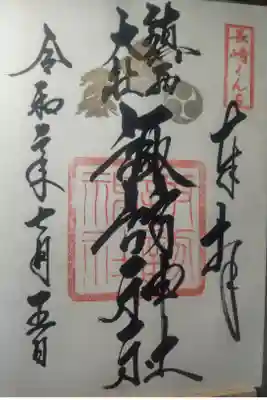 長崎くんち
奉拝
鎮西
大社
諏訪神社
令和年月五日